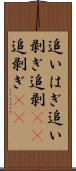 追いはぎ追い
剥ぎ追剥
追剥ぎ